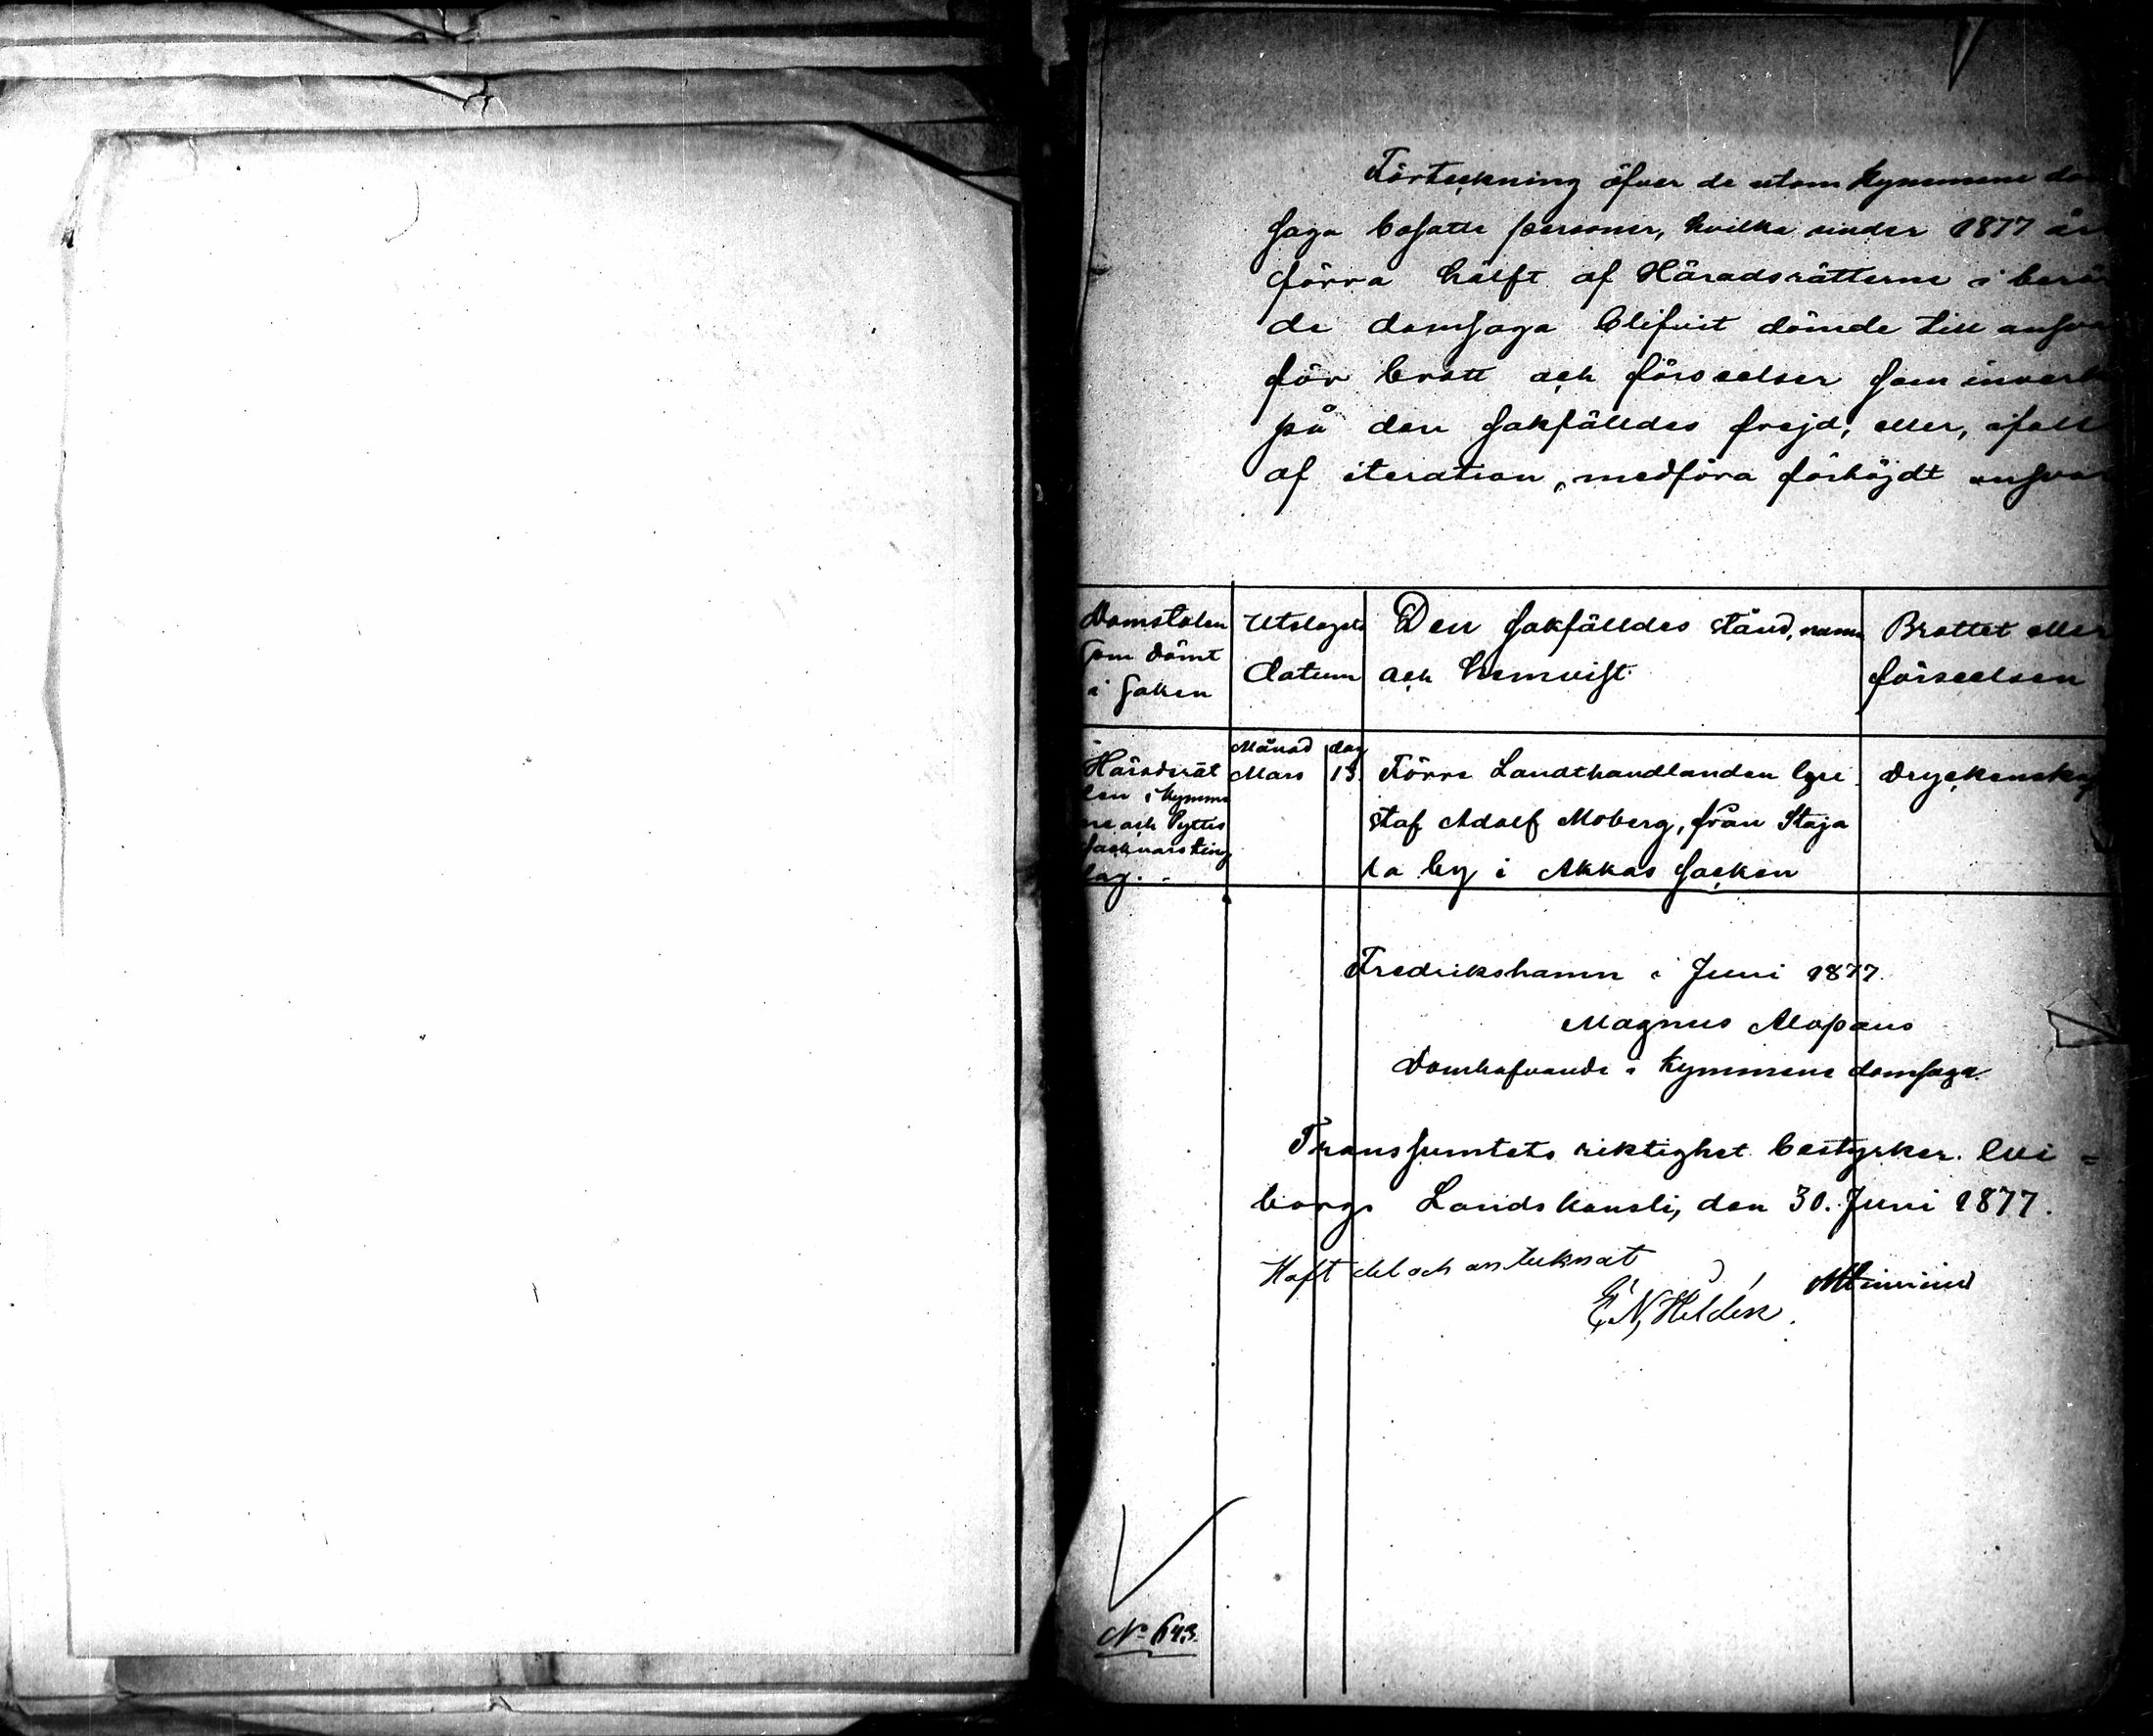 Förteckning öfver de utom Kymmene dom
saga bosatte personer, hvilka under 1877 års
förra hälft af Häradsrätterne i berör
de domsaga blifvit dömde till ansva
för brott och förseelser som inverka
på den sakfälldes frejd, eller, ifall
af iteration, medföra förhöjdt ansvar
Domstolen
som dömt
i saken
Utslagets
datum
Den sakfälldes stånd, namn
och hemvist.
Brottet eller
förseelsen
Häradsrät
ten i Kymme
ne och Pyttis
socknars ting
lag.
Månad
Mars
dag
13.
Förre Landthandlanden Gu
staf Adolf Moberg, från
la by i socken
Dryckenskap
Fredrikshamn i Juni 1877.
Magnus Alopæus
Domhafvande i Kymmene domsaga.
Transsumtets riktighet bestyrker. Wi=
borgs Landskansli, den 30. Juni 1877.
Haft del och antecknat
E. N. Heldén.
No 643.